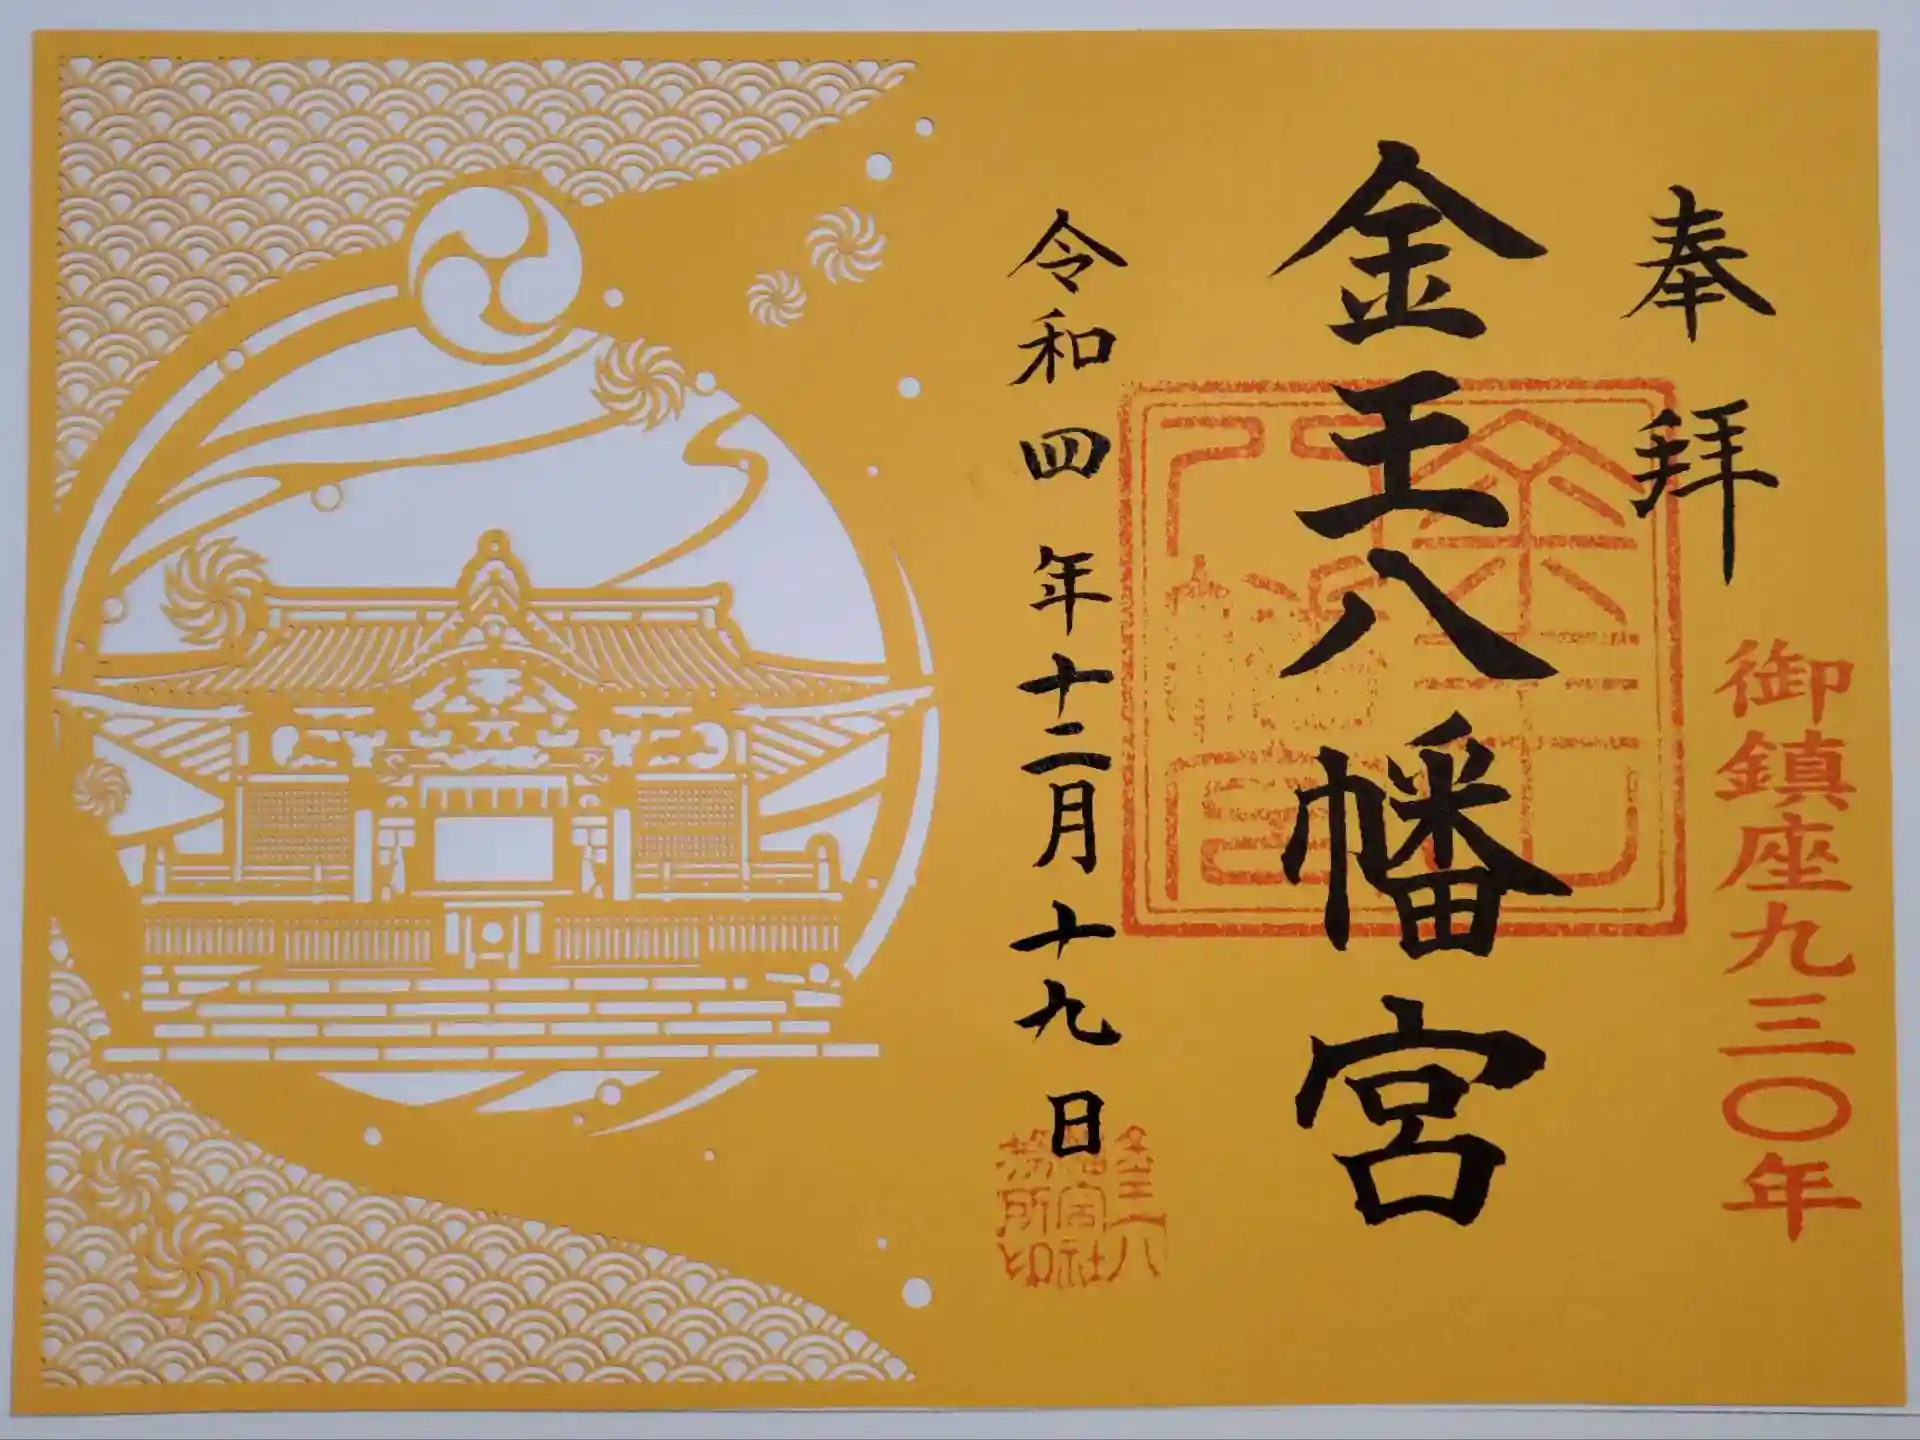 奉拝
御鎮座九三〇年
金王八幡宮
令和四年十二月十九日
金王八
幡宮社
務所印